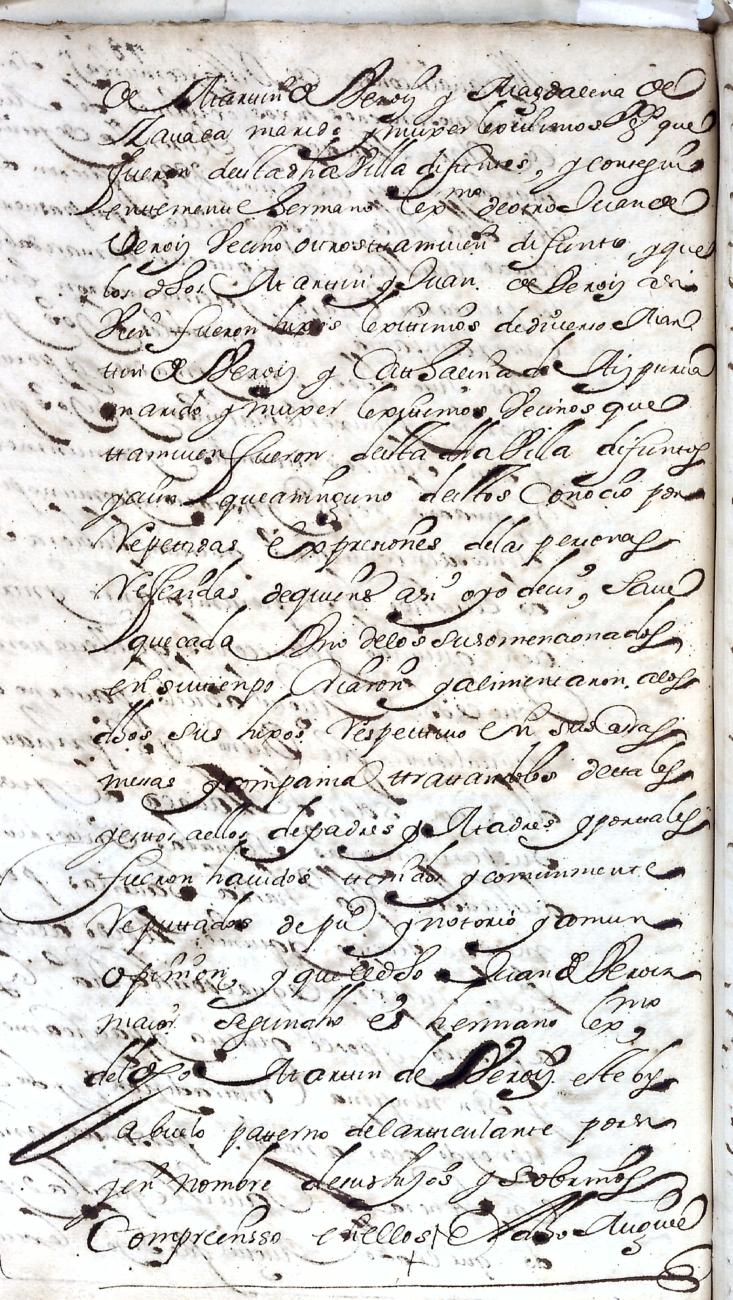 de Martin de Veroiz y Magdalena de
Zavala marido y muxer lexitimos que
fueron desta dha Villa difuntos, y consigui
entemente hermano lexmo de otro Juan de
Veroiz Vecino otrosi tamvien difunto, y que
los dhos Martin y Juan de Veroiz assi
vien fueron hixos lexitimos de diverso Mar
tin de Veroiz y Cathalina de Aizpurua
marido y muxer lexitimos Vecinos que
ttamvien fueron desta dha Villa difuntos
y aun que aninguno destos Conocio por
Repetidas expresiones delas personas
Referidas de quienes assi oyo decir, Save
que cada Uno delos susomencionados
en su tiempo Criaron y alimentaron alos
dhos sus hixos Respectivo en sus Casas
mesas y compania ttratandolos de tales
y estos aellos de padres y Madres y por tales
fueron havidos tenidos y comunmente
Reputados de puco y notorio y comun
opinion, y que el dho Juan de Veroiz
maior segundo es hermano lexmo
del dho Martin de Veroiz este bis
abuelo paterno del articulante por si
y en nombre de sus hijos y sobrinos
Compreensso en ellos, El dho Migue